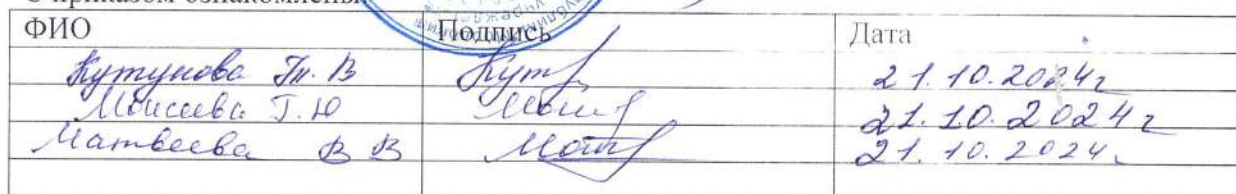 С приказом ознакомлены
ФИО Подпись Дата
Кутунова Т. В 21.10.2024г
Моисеева Т. Ю 21.10.2024г
Матвеева В В 21.10.2024